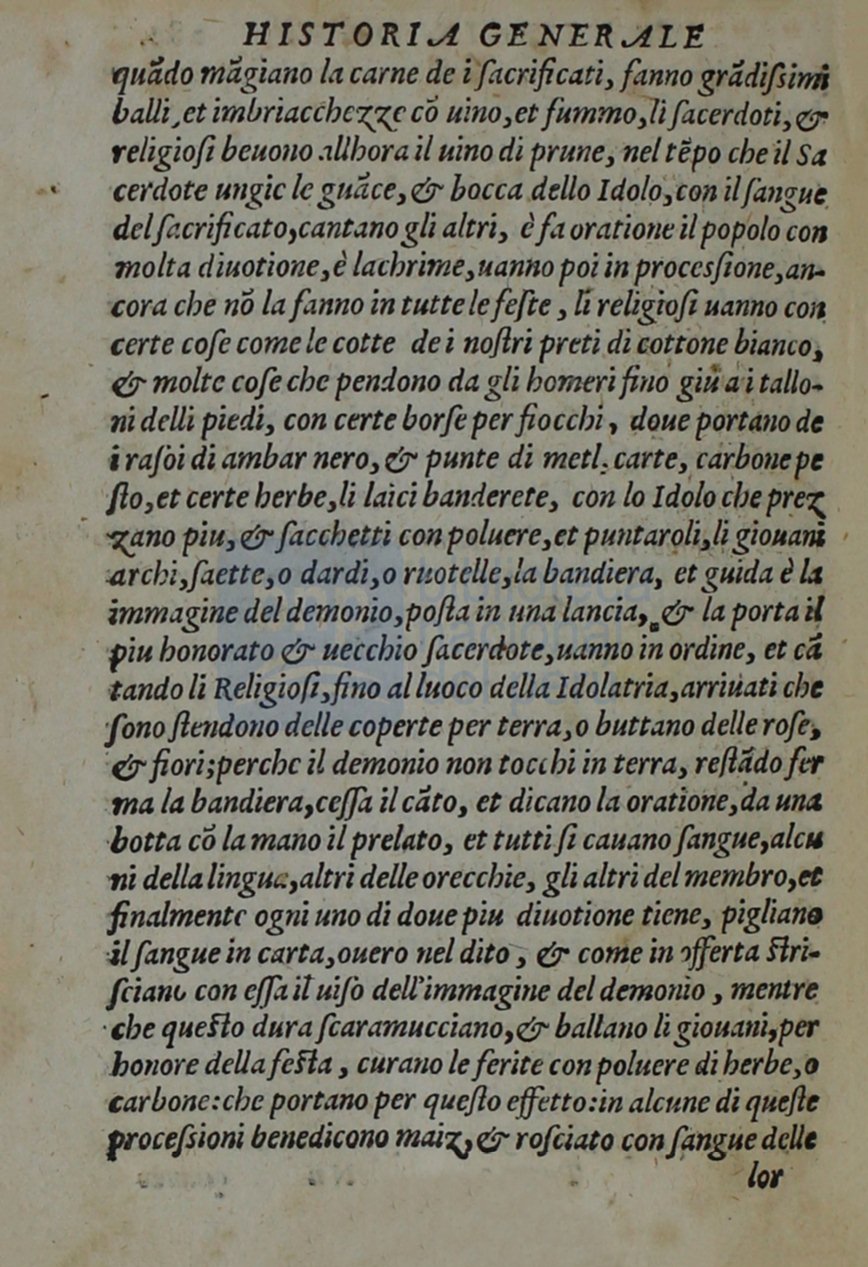 HISTORIA GENERALE
quãdo mãgiano la carne de i ſacrificati, fanno grãdiſsimi
balli, et imbriacchezze cõ uino, et fummo, li ſacerdoti, &
religioſi beuono allhora il uino di prune, nel tẽpo che il Sa
cerdote ungie le guãce, & bocca dello Idolo, con il ſangue
del ſacrificato, cantano gli altri, è fa oratione il popolo con
molta diuotione, è lachrime, uanno poi in procesſione, an-
cora che nõ la fanno in tutte le feſte, li religioſi uanno con
certe coſe come le cotte de i noſtri preti di cottone bianco,
& molte coſe che pendono da gli homeri fino giù a i tallo-
ni delli piedi, con certe borſe per fiocchi, doue portano de
i raſoi di ambar nero, & punte di metl. carte, carbone pe
ſto, et certe herbe, li laici banderete, con lo Idolo che prez
zano piu, & ſacchetti con poluere, et puntaroli, li giouani
archi, ſaette, o dardi, o ruotelle, la bandiera, et guida è la
immagine del demonio, poſta in una lancia, & la porta il
piu honorato & uecchio ſacerdote, uanno in ordine, et cã
tando li Religioſi, fino al luoco della Idolatria, arriuati che
ſono ſtendono delle coperte per terra, o buttano delle roſe,
& fiori; perche il demonio non tocchi in terra, reſtãdo fer
ma la bandiera, ceſſa il cãto, et dicano la oratione, da una
botta cõ la mano il prelato, et tutti ſi cauano ſangue, alcu
ni della lingua, altri delle orecchie, gli altri del membro, et
finalmente ogni uno di doue piu diuotione tiene, pigliano
il ſangue in carta, ouero nel dito, & come in offerta ſtri-
ſciano con eſſa il uiſo dell'immagine del demonio, mentre
che queſto dura ſcaramucciano, & ballano li giouani, per
honore della feſta, curano le ferite con poluere di herbe, o
carbone: che portano per queſto effetto: in alcune di queſte
proceſsioni benedicono maiz, & roſciato con ſangue delle
lor